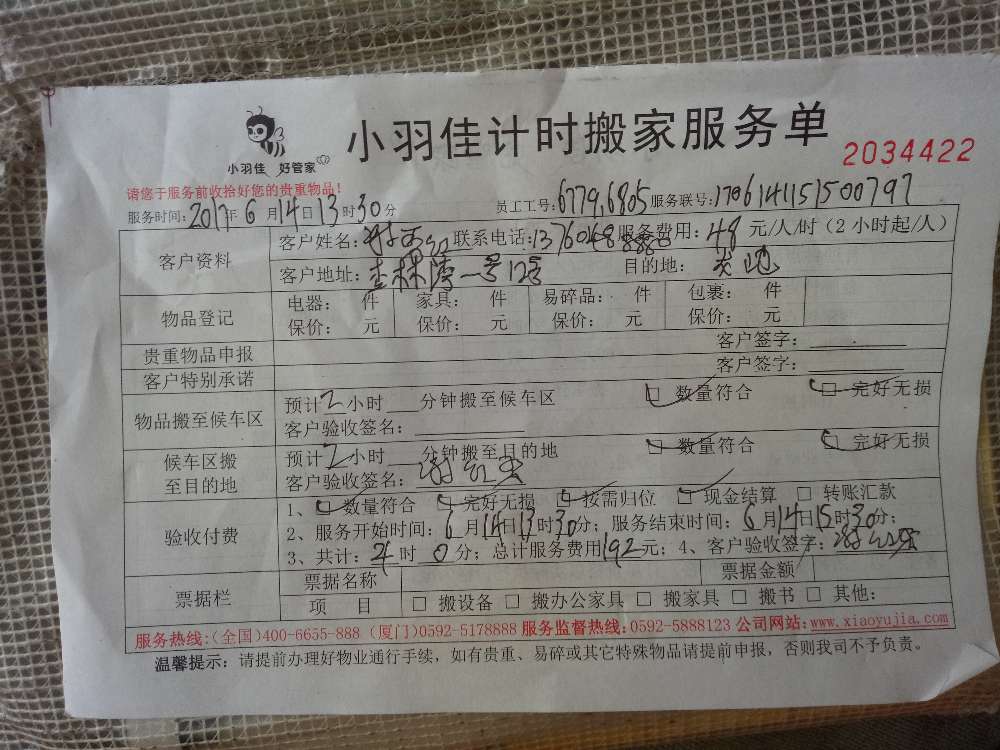 小羽佳 好管家
小羽佳计时搬家服务单
2034422
请您于服务前收拾好您的贵重物品!
服务时间:2017年6月14日13时30分 员工工号:6779,6805 服务联号:1706141151500797
客户资料
客户姓名: 联系电话: 服务费用:48元/人/时(2小时起/人)
客户地址:杏林湾一号12号 目的地:
物品登记
电器: 件 家具: 件 易碎品: 件 包裹: 件
保价: 元 保价: 元 保价: 元 保价: 元
贵重物品申报 客户签字:
客户特别承诺 客户签字:
物品搬至候车区
预计2小时 分钟搬至候车区 数量符合 完好无损
客户验收签名:
候车区搬
至目的地
预计2小时 分钟搬至目的地 数量符合 完好无损
客户验收签名:
验收付费
1、数量符合 完好无损 按需归位 现金结算 转账汇款
2、服务开始时间:6月14日13时30分; 服务结束时间:6月14日15时30分;
3、共计: 时0分; 总计服务费用192元; 4、客户验收签字:
票据栏
票据名称 票据金额
项 目 搬设备 搬办公家具 搬家具 搬书 其他:
服务热线:(全国)400-6655-888 (厦门)0592-5178888 服务监督热线:0592-5888123 公司网站:www.xiaoyujia.com
温馨提示: 请提前办理好物业通行手续,如有贵重、易碎或其它特殊物品请提前申报,否则我司不予负责。